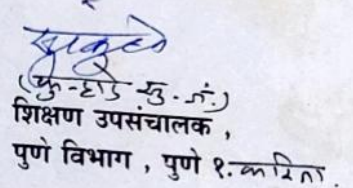 (कु-हाडे सु.जं.)
शिक्षण उपसंचालक,
पुणे विभाग, पुणे १. करिता.